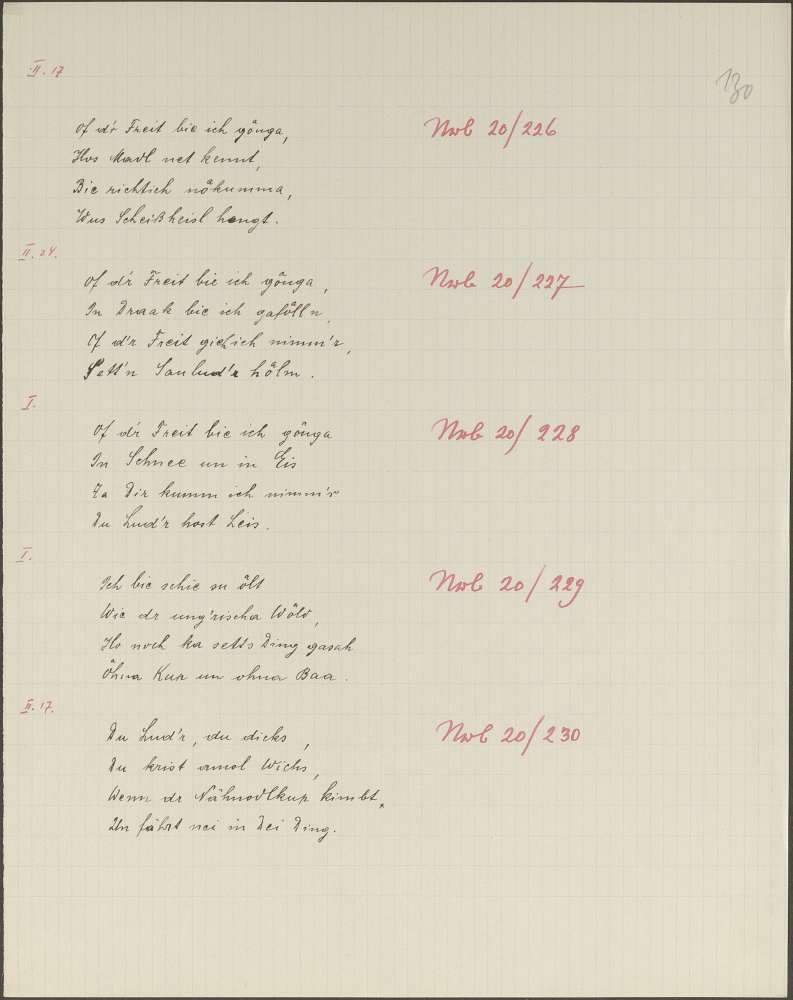 II. 17
130
Of d'r Freit bie ich gönga,
Nwb 20/226
Hos Madl net kennt,
Bie richtich nökumma,
Wus Scheißheisl hengt.
II. 24.
Of d'r Freit bie ich gönga,
Nwb 20/227
In Draak bie ich gafölln,
Of d'r Freit gieh ich nimm'r,
Sett'n Saulud'r hölm.
I.
Of d'r Freit bie ich gönga
Nwb 20/228
In Schnee un in Eis
Za Dir kumm ich nimm'r
Du Lud'r host Leis.
I.
Ich bie schie su ölt
Nwb 20/229
Wie dr ung'rischa Wöld,
Ho noch ka setts Ding gasah
Öhna Kup un ohna Baa.
II. 17.
Du Lud'r, du dicks,
Nwb 20/230
Du krist amol Wichs,
Wenn dr Nähnodlkup kimbt,
Un fährt nei in Dei Ding.